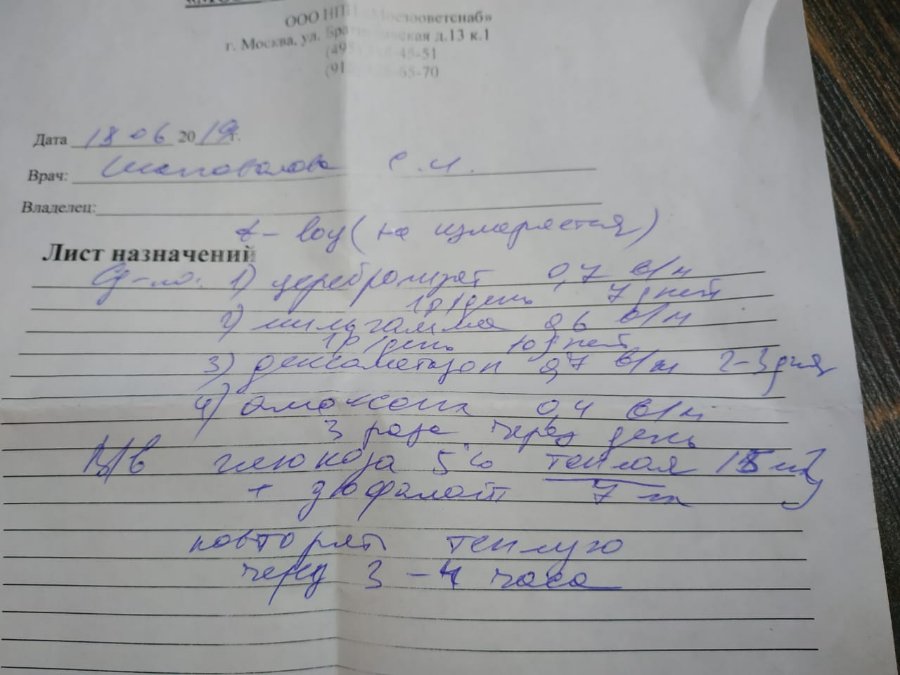 ООО НПП «Мосзооветснаб»
г. Москва, ул. д.13 к.1
Дата 18 06 2019г.
Врач: Шаповалова С.И.
Владелец:
t – low (не измеряется)
Лист назначений
1) церебролизат 0,7 в/м
1р/день 7 дней
2) мильгамма 0,6 в/м
1р/день 10 дней
3) дексаметазон 0,7 в/м 2-3 дня
4) 0,4 в/м
3 раза через день
В/в глюкоза 5% теплая
+ 7 мл
повторять теплую
через 3-4 часа